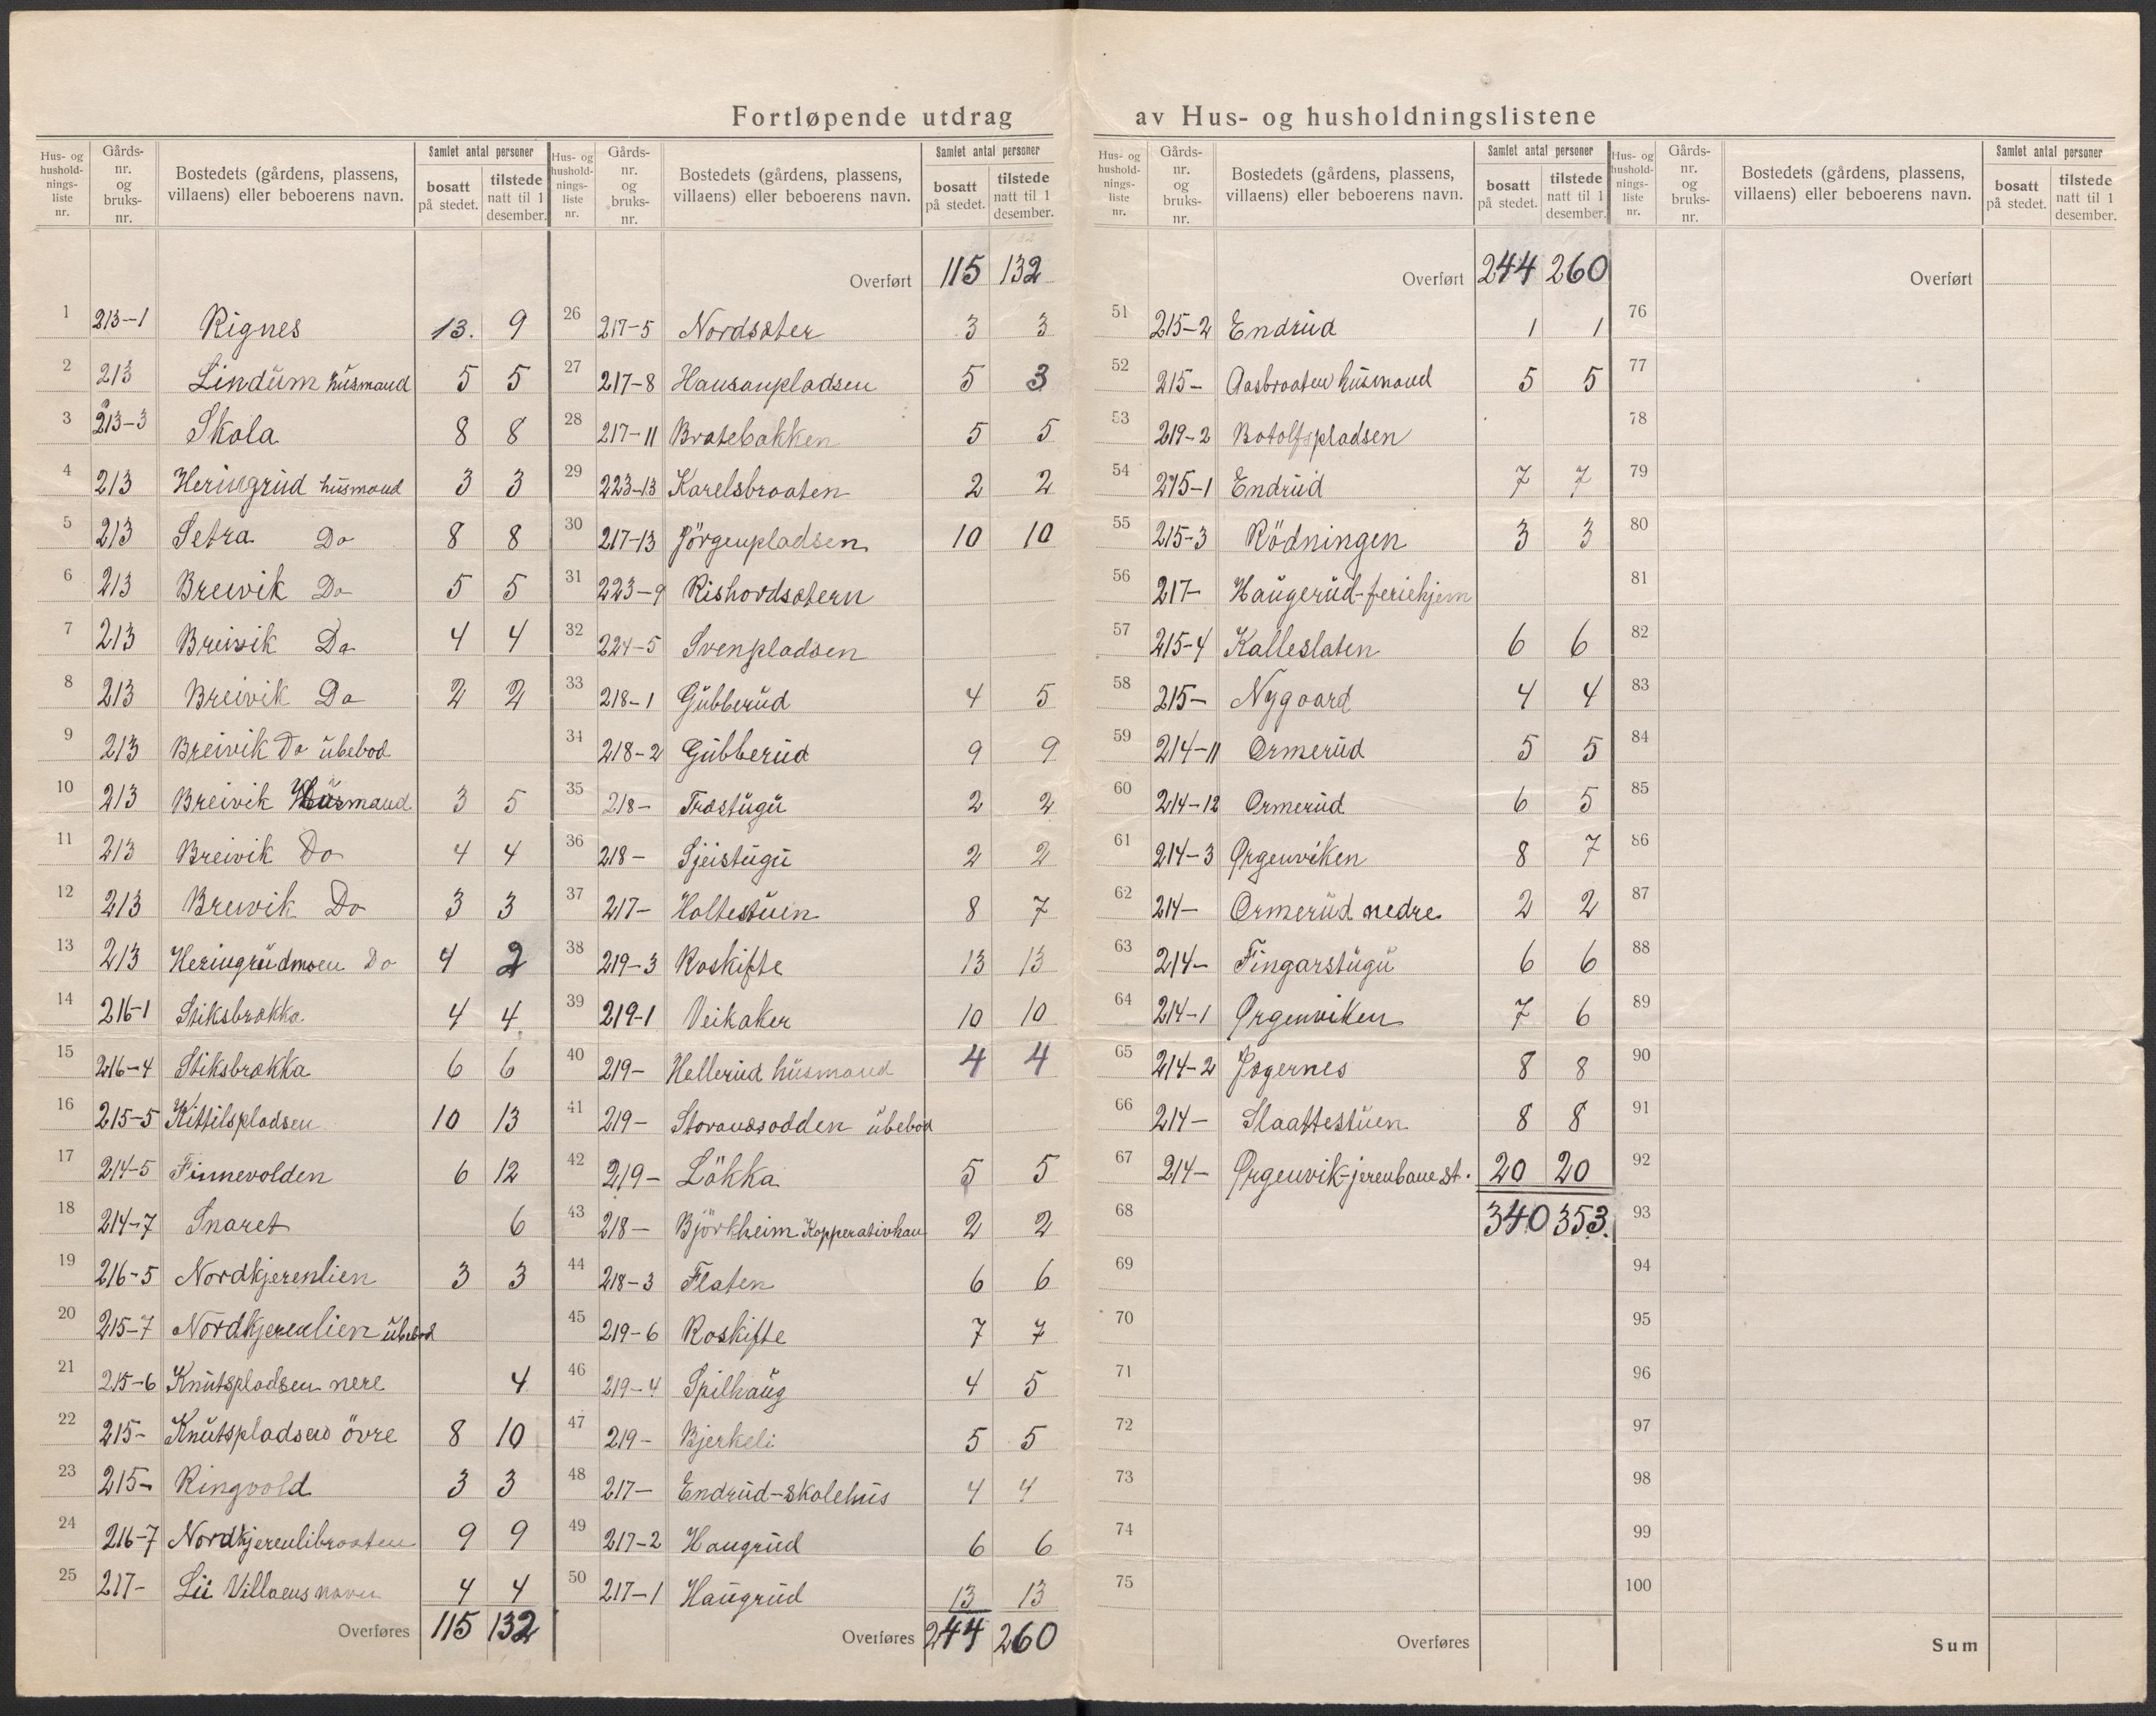 Fortløpende utdrag av Hus- og husholdningslistene
Hus- og husholdnings-liste nr. | Gårds-nr. og bruks-nr. | Bostedets (gårdens, plassens, villaens) eller beboerens navn. | Samlet antal personer | bosatt på stedet. | tilstede natt til 1 desember.
1 213-1 Rignes 13. 9
2 213 Lindŭm hŭsmand 5 5
3 213-3 Skola 8 8
4 213 Heringrŭd hŭsmand 3 3
5 213 Setra Do 8 8
6 213 Breivik Do 5 5
7 213 Breivik Do 4 4
8 213 Breivik Do 2 2
9 213 Breivik Do ŭbebod
10 213 Breivik Hŭsmand 3 5
11 213 Breivik Do 4 4
12 213 Breivik Do 3 3
13 213 Heringrŭdmoen Do 4 2
14 216-1 Stiksbrakka 4 4
15 216-4 Stiksbrakka 6 6
16 215-5 Kittilspladsen 10 13
17 214-5 Finnevolden 6 12
18 214-7 Snaret 6
19 216-5 Nordkjerenlien 3 3
20 215-7 Nordkjerenlien ŭbebod
21 215-6 Knŭtspladsen nere 4
22 215- Knŭtspladsen övre 8 10
23 215- Ringvold 3 3
24 216-7 Nordkjerenlibroaten 9 9
25 217- Lii Villaens navn 4 4
Overføres 115 132
Hus- og husholdnings-liste nr. | Gårds-nr. og bruks-nr. | Bostedets (gårdens, plassens, villaens) eller beboerens navn. | Samlet antal personer | bosatt på stedet. | tilstede natt til 1 desember.
Overført 115 132
26 217-5 Nordsæter 3 3
27 217-8 Hansenpladsen 5 3
28 217-11 Bratebakken 5 5
29 223-13 Karelsbroaten 2 2
30 217-13 Jörgenpladsen 10 10
31 223-9 Rishovdsætern
32 224-5 Svenpladsen
33 218-1 Gŭbberŭd 4 5
34 218-2 Gŭbberŭd 9 9
35 218- Træstŭgŭ 2 2
36 218- Sjeistŭgŭ 2 2
37 217- Holtestŭen 8 7
38 219-3 Roskifte 13 13
39 219-1 Veikaker 10 10
40 219- Hellerŭd hŭsmand 4 4
41 219- Storønesodden ŭbebod
42 219- Lökka 5 5
43 218- Björkheim Kopperativhan 2 2
44 218-3 Flaten 6 6
45 219-6 Roskifte 7 7
46 219-4 Spilhaŭg 4 5
47 219- Bjerkeli 5 5
48 217- Endrŭd-skolehŭs 4 4
49 217-2 Haugrŭd 6 6
50 217-1 Haŭgrŭd 13 13
Overføres 244 260
Hus- og husholdnings-liste nr. | Gårds-nr. og bruks-nr. | Bostedets (gårdens, plassens, villaens) eller beboerens navn. | Samlet antal personer | bosatt på stedet. | tilstede natt til 1 desember.
Overført 244 260
51 215-2 Endrŭd 1 1
52 215- Aasbroaten hŭsmand 5 5
53 219-2 Botolfspladsen
54 215-1 Endrŭd 7 7
55 215-3 Rödningen 3 3
56 217- Haŭgerŭd-feriehjem
57 215-4 Kalleslaten 6 6
58 215- Nygaard 4 4
59 214-11 Ormerŭd 5 5
60 214-12 Ormerŭd 6 5
61 214-3 Ørgenviken 8 7
62 214- Ormerŭd nedre 2 2
63 214- Fingarstŭgŭ 6 6
64 214-1 Ørgenviken 7 6
65 214-2 Jægernes 8 8
66 214- Slaattestŭen 8 8
67 214- Ørgenvik-jerenbane st. 20 20
68 340 353.
69
70
71
72
73
74
75
Overføres
Hus- og husholdnings-liste nr. | Gårds-nr. og bruks-nr. | Bostedets (gårdens, plassens, villaens) eller beboerens navn. | Samlet antal personer | bosatt på stedet. | tilstede natt til 1 desember.
Overført
76
77
78
79
80
81
82
83
84
85
86
87
88
89
90
91
92
93
94
95
96
97
98
99
100
Sum